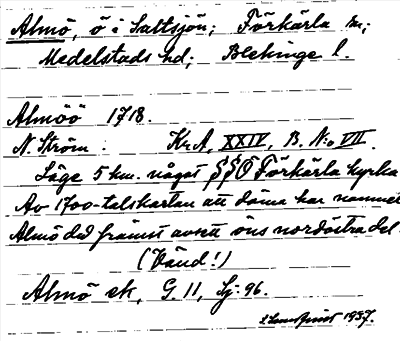 Almö, ö i Saltsjön; Förkärla sn;
Medelstads hd; Blekinge l.
Almöö 1718.
N. Ström: Kr.A, XXIV, B. N:o VII.
Läge 5 km. något SSÖ Förkärla kyrka
Av 1700-talskartan att döma har namnet
Almö då främst avsett öns nordöstra del.
(Vänd!)
Almö ek, G. 11, Sj. 96.
1937.